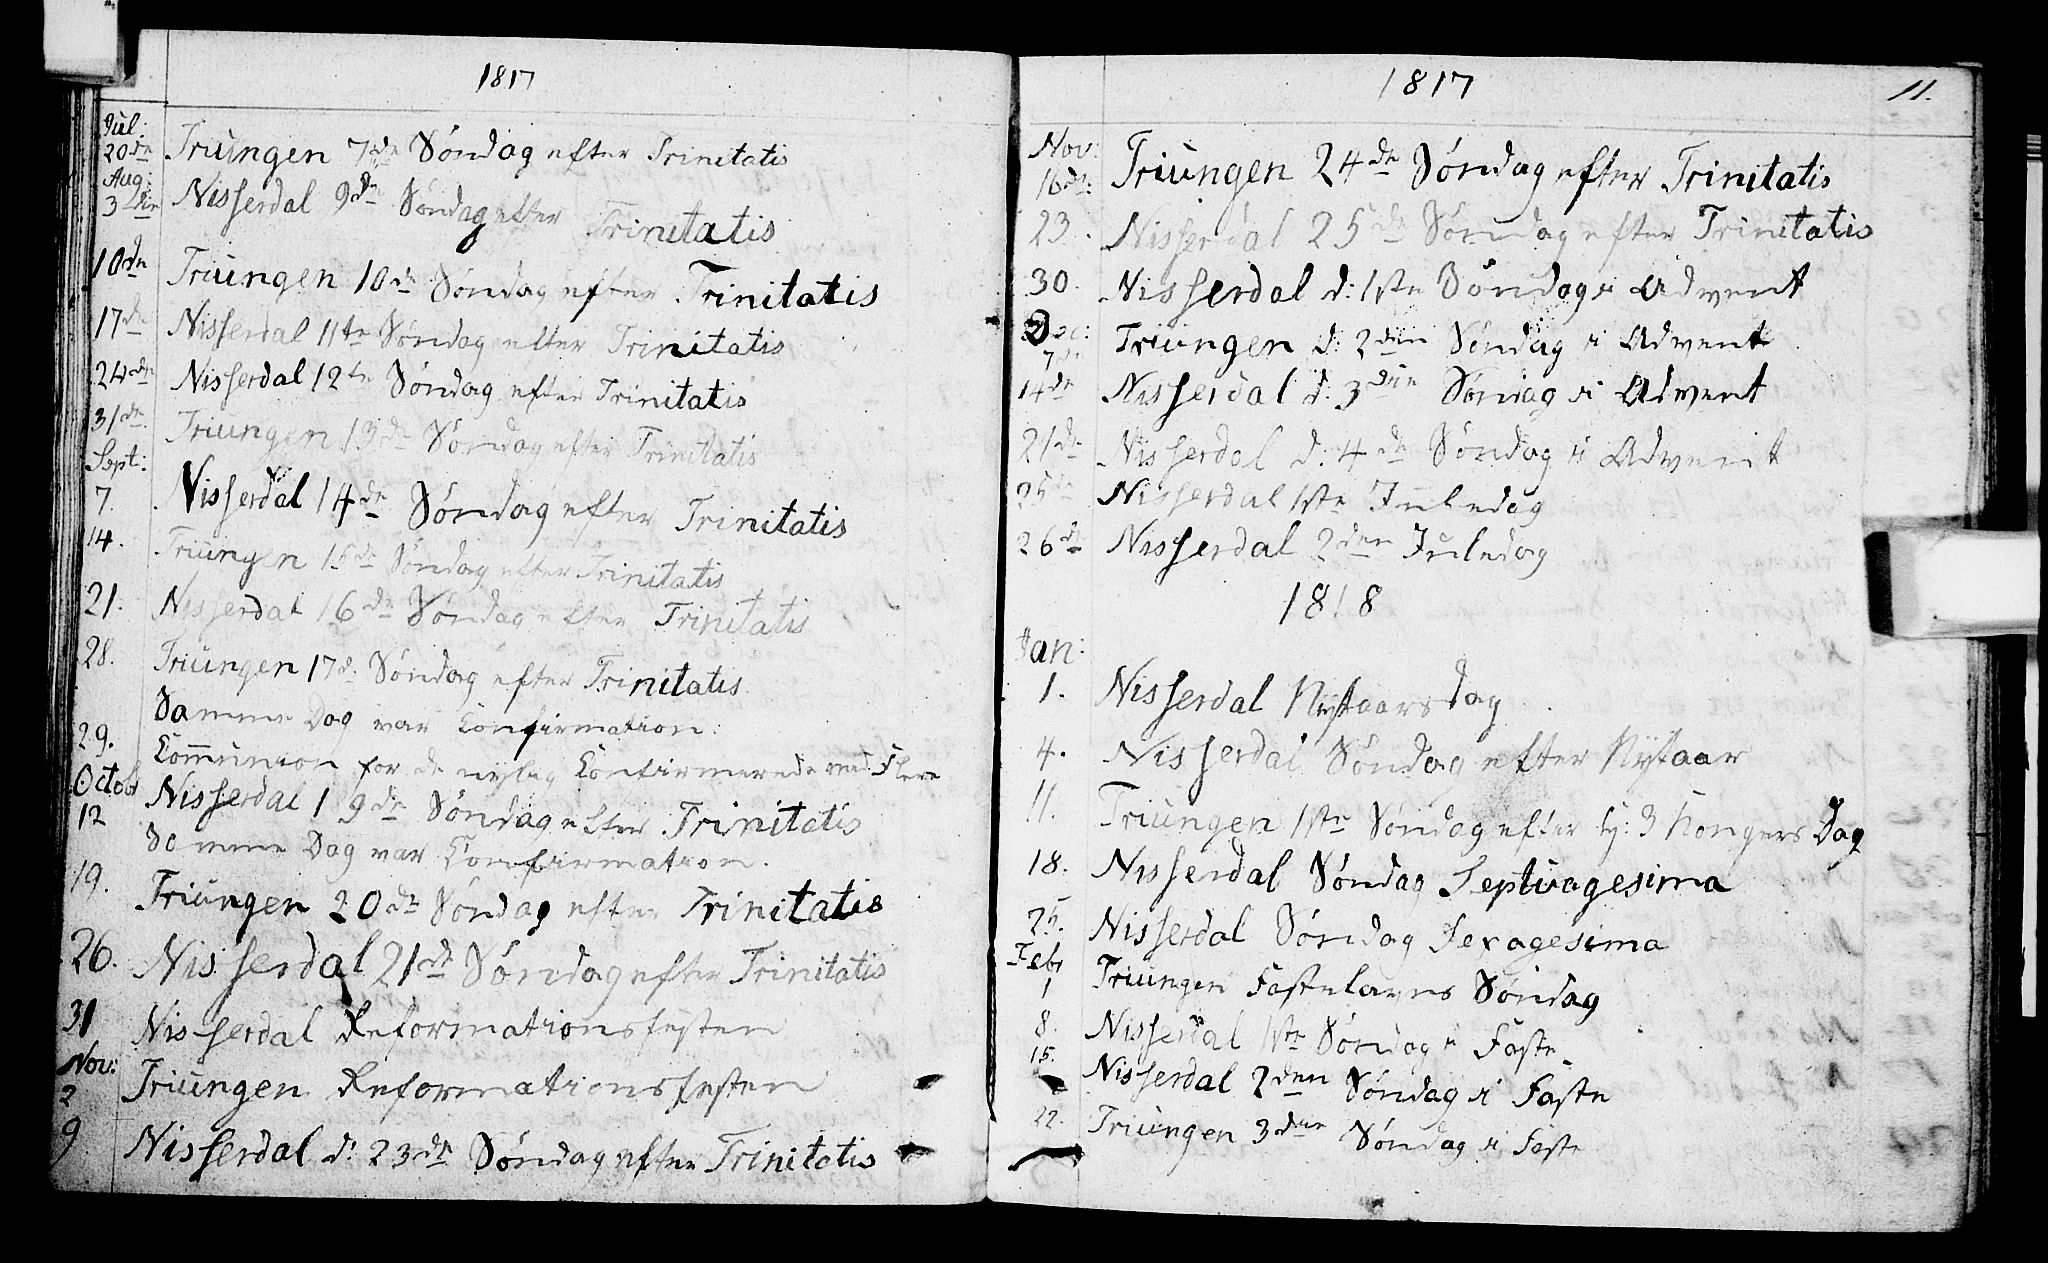 1817
Jul:
20de Triungen 7de Søndag efter Trinitatis
Aug:
3die Nisserdal 9de Søndag efter Trinitatis
10de Triungen 10de Søndag efter Trinitatis
17de Nisserdal 11te Søndag efter Trinitatis
24de Nisserdal 12te Søndag efter Trinitatis
31de Triungen 13de Søndag efter Trinitatis
Sept:
7. Nisserdal 14de Søndag efter Trinitatis
14. Triungen 15de Søndag efter Trinitatis
21. Nisserdal 16de Søndag efter Trinitatis
28. Triungen 17d: Søndag efter Trinitatis
Samme Dag var Confirmation:
29. Com̄union for de nylig Confirmerede med Flere
Octobr
12 Nisserdal 19de Søndag efter Trinitatis
Samme Dag var Confirmation.
19. Triungen 20de Søndag efter Trinitatis
26. Nisserdal 21de Søndag efter Trinitatis
31 Nisserdal Reformationsfesten
Nov:
2 Triungen Reformationsfesten
9 Nisserdal d: 23de Søndag efter Trinitatis
1817
11.
Nov:
16de: Triungen 24de Søndag efter Trinitatis
23. Nisserdal 25de Søndag efter Trinitatis
30. Nisserdal d: 1ste Søndag i Advent
Dec:
7de Triungen d: 2den Søndag i Advent
14de Nisserdal d: 3die Søndag i Advent
21de Nisserdal d: 4de Søndag i Advent
25de Nisserdal 1ste Juledag
26de Nisserdal 2den Juledag
1818
Jan:
1. Nisserdal Nytaarsdag
4. Nisserdal Søndag efter Nytaar
11. Triungen 1ste Søndag efter h: 3 Kongers Dag
18. Nisserdal Søndag Septuagesima
25. Nisserdal Søndag Sexagesima
Febr
1 Triungen Fastelavns Søndag
8. Nisserdal 1ste Søndag i Faste
15. Nisserdal 2den Søndag i Faste
22. Triungen 3die Søndag i Faste